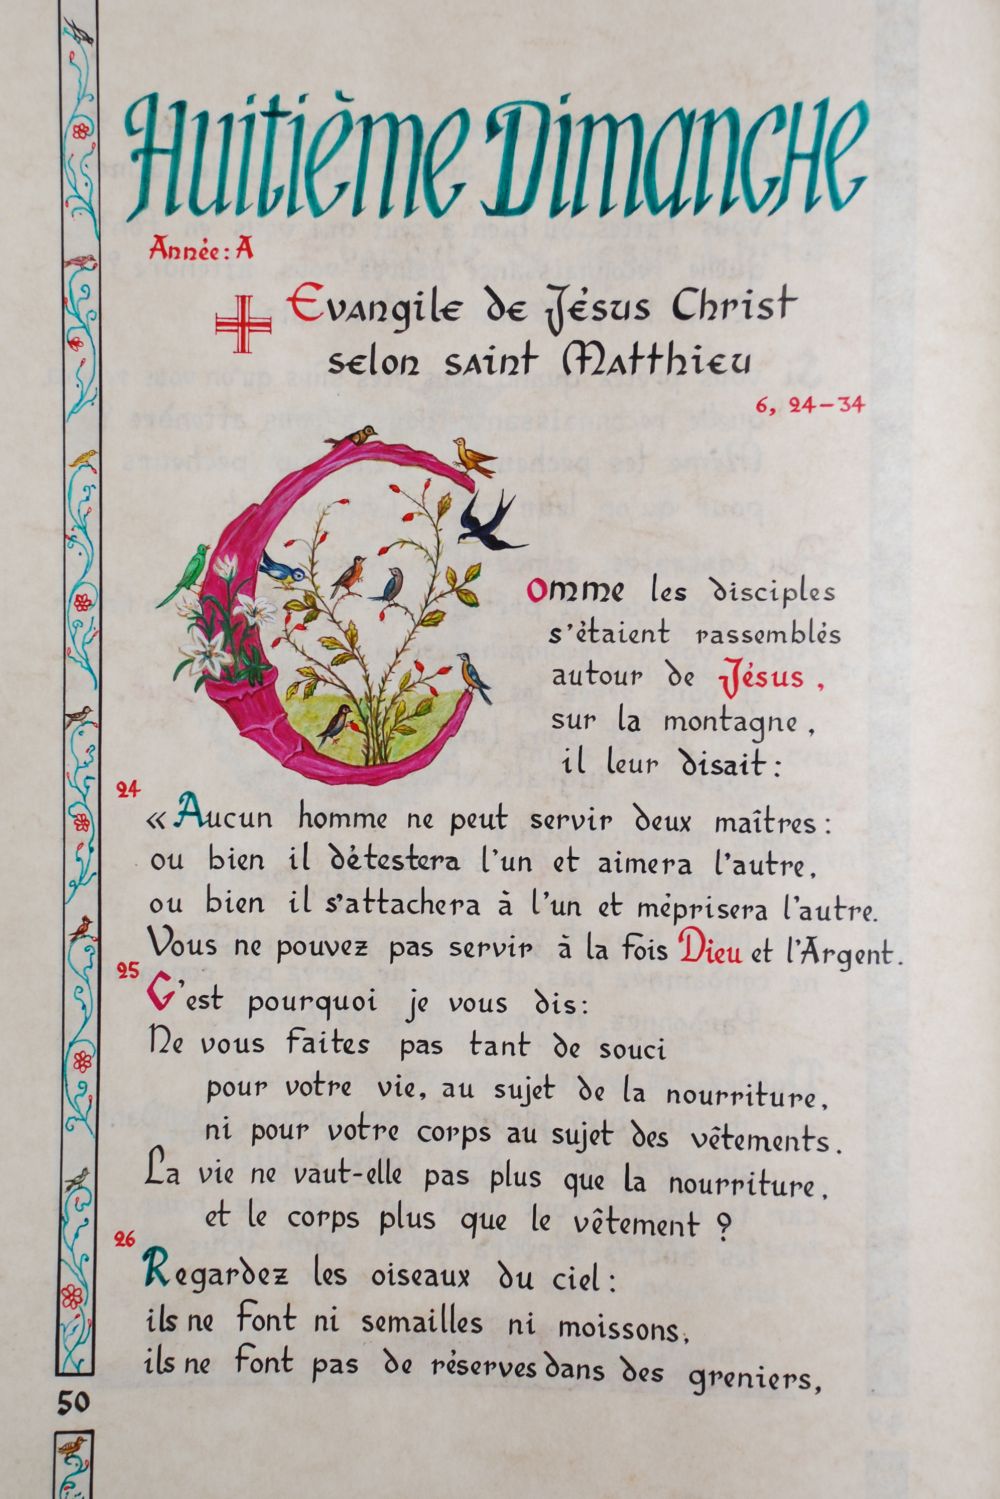 Huitième Dimanche
Année: A
Evangile de Jésus Christ
selon saint Matthieu
6, 24-34
Comme les disciples
s'étaient rassemblés
autour de Jésus,
sur la montagne,
il leur disait:
24
« Aucun homme ne peut servir deux maîtres:
ou bien il détestera l'un et aimera l'autre,
ou bien il s'attachera à l'un et méprisera l'autre.
Vous ne pouvez pas servir à la fois Dieu et l'Argent.
25
C'est pourquoi je vous dis:
Ne vous faites pas tant de souci
pour votre vie, au sujet de la nourriture,
ni pour votre corps au sujet des vêtements.
La vie ne vaut-elle pas plus que la nourriture,
et le corps plus que le vêtement ?
26
Regardez les oiseaux du ciel:
ils ne font ni semailles ni moissons,
ils ne font pas de réserves dans des greniers,
50